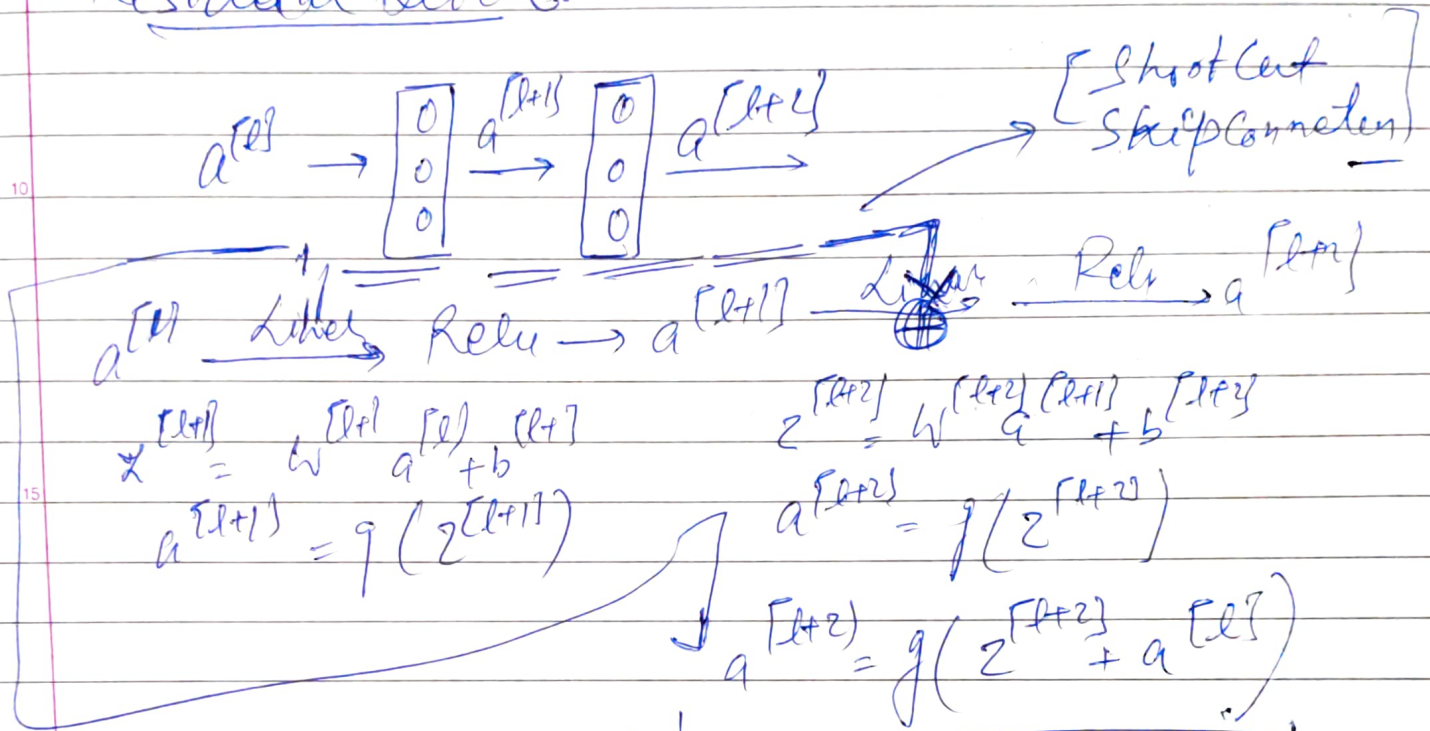 a^[l] → a^[l+1] → a^[l+2] →
[Shrot Cut
Skip Connetun]
a^[l] Linear → Relu → a^[l+1] Linear → Relu → a^[l+2]
z^[l+1] = W^[l+1] a^[l] + b^[l+1]
a^[l+1] = g(z^[l+1])
z^[l+2] = W^[l+2] a^[l+1] + b^[l+2]
a^[l+2] = g(z^[l+2])
a^[l+2] = g(z^[l+2] + a^[l])
10
15